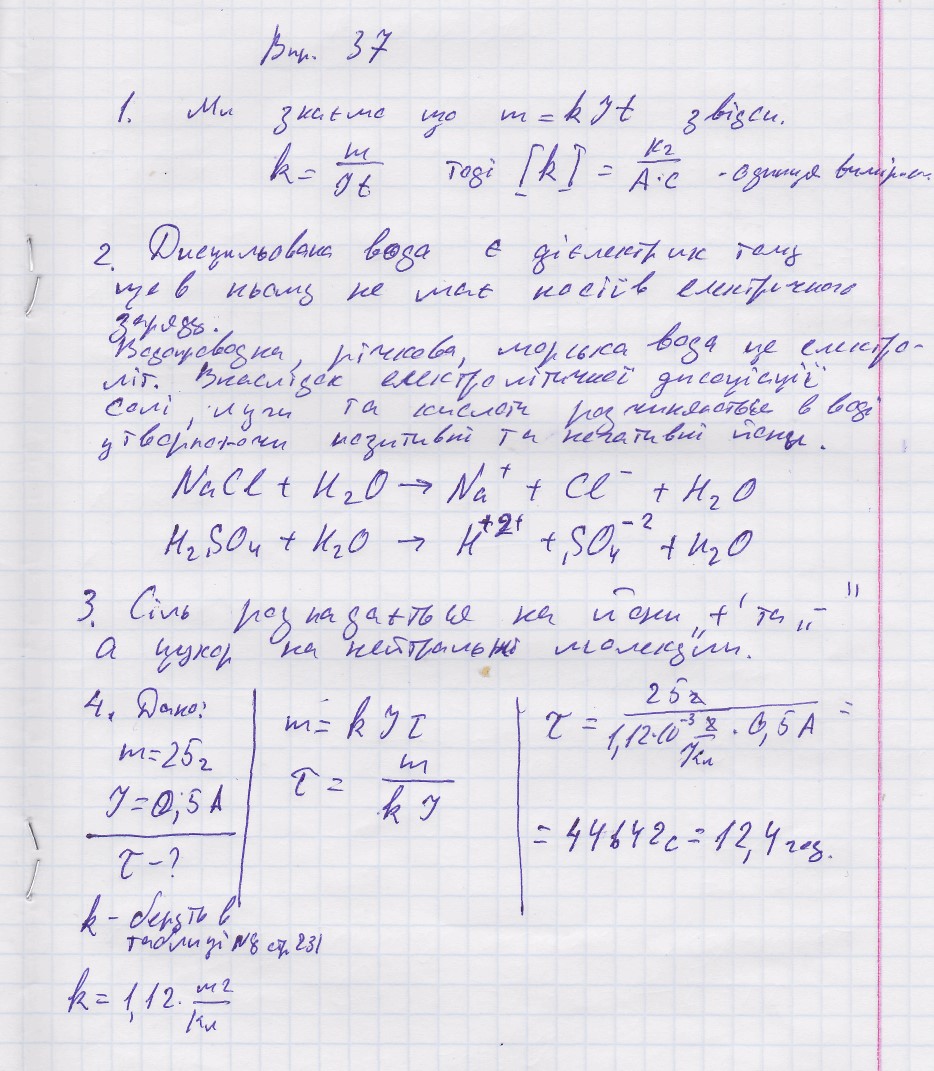 Впр. 37
1. Ми знаємо що m = k I t звідси.
k = m/It тоді [k] = кг/А·с - одиниця вимірюв.
2. Дисцильована вода є діелектрик тому
що в ньому не має носіїв електричного
заряду.
Водопроводна, річкова, морська вода це електро-
літ. Внаслідок електролітичної дисоціації
солі, луги та кислоти розчиняються в воді
утворюючи позитивні та негативні йони.
NaCl + H₂O → Na⁺ + Cl⁻ + H₂O
H₂SO₄ + H₂O → H⁺²⁺ + SO₄⁻² + H₂O
3. Сіль розпадається на йони „+" та „-"
А цукор на нейтральні молекули.
4. Дано:
m = 25г
I = 0,5 A
τ - ?
k - беруть в
таблиці №8 стр. 231
k = 1,12 · мг/Кл
m = k I τ
τ = m/k I
τ = 25г/1,12·10⁻³ г/Кл · 0,5A =
= 44642с = 12,4 год.